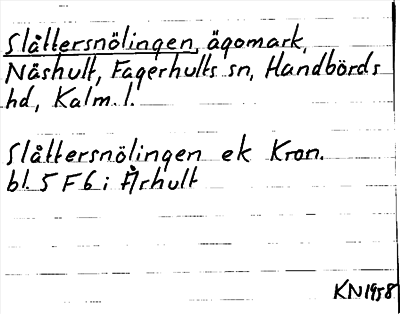 Slåttersnölingen, ägomark,
Näshult, Fagerhults sn, Handbörds
hd, Kalm. l.
Slåttersnölingen ek Kron.
bl. 5 F 6 i Århult
KN 1958